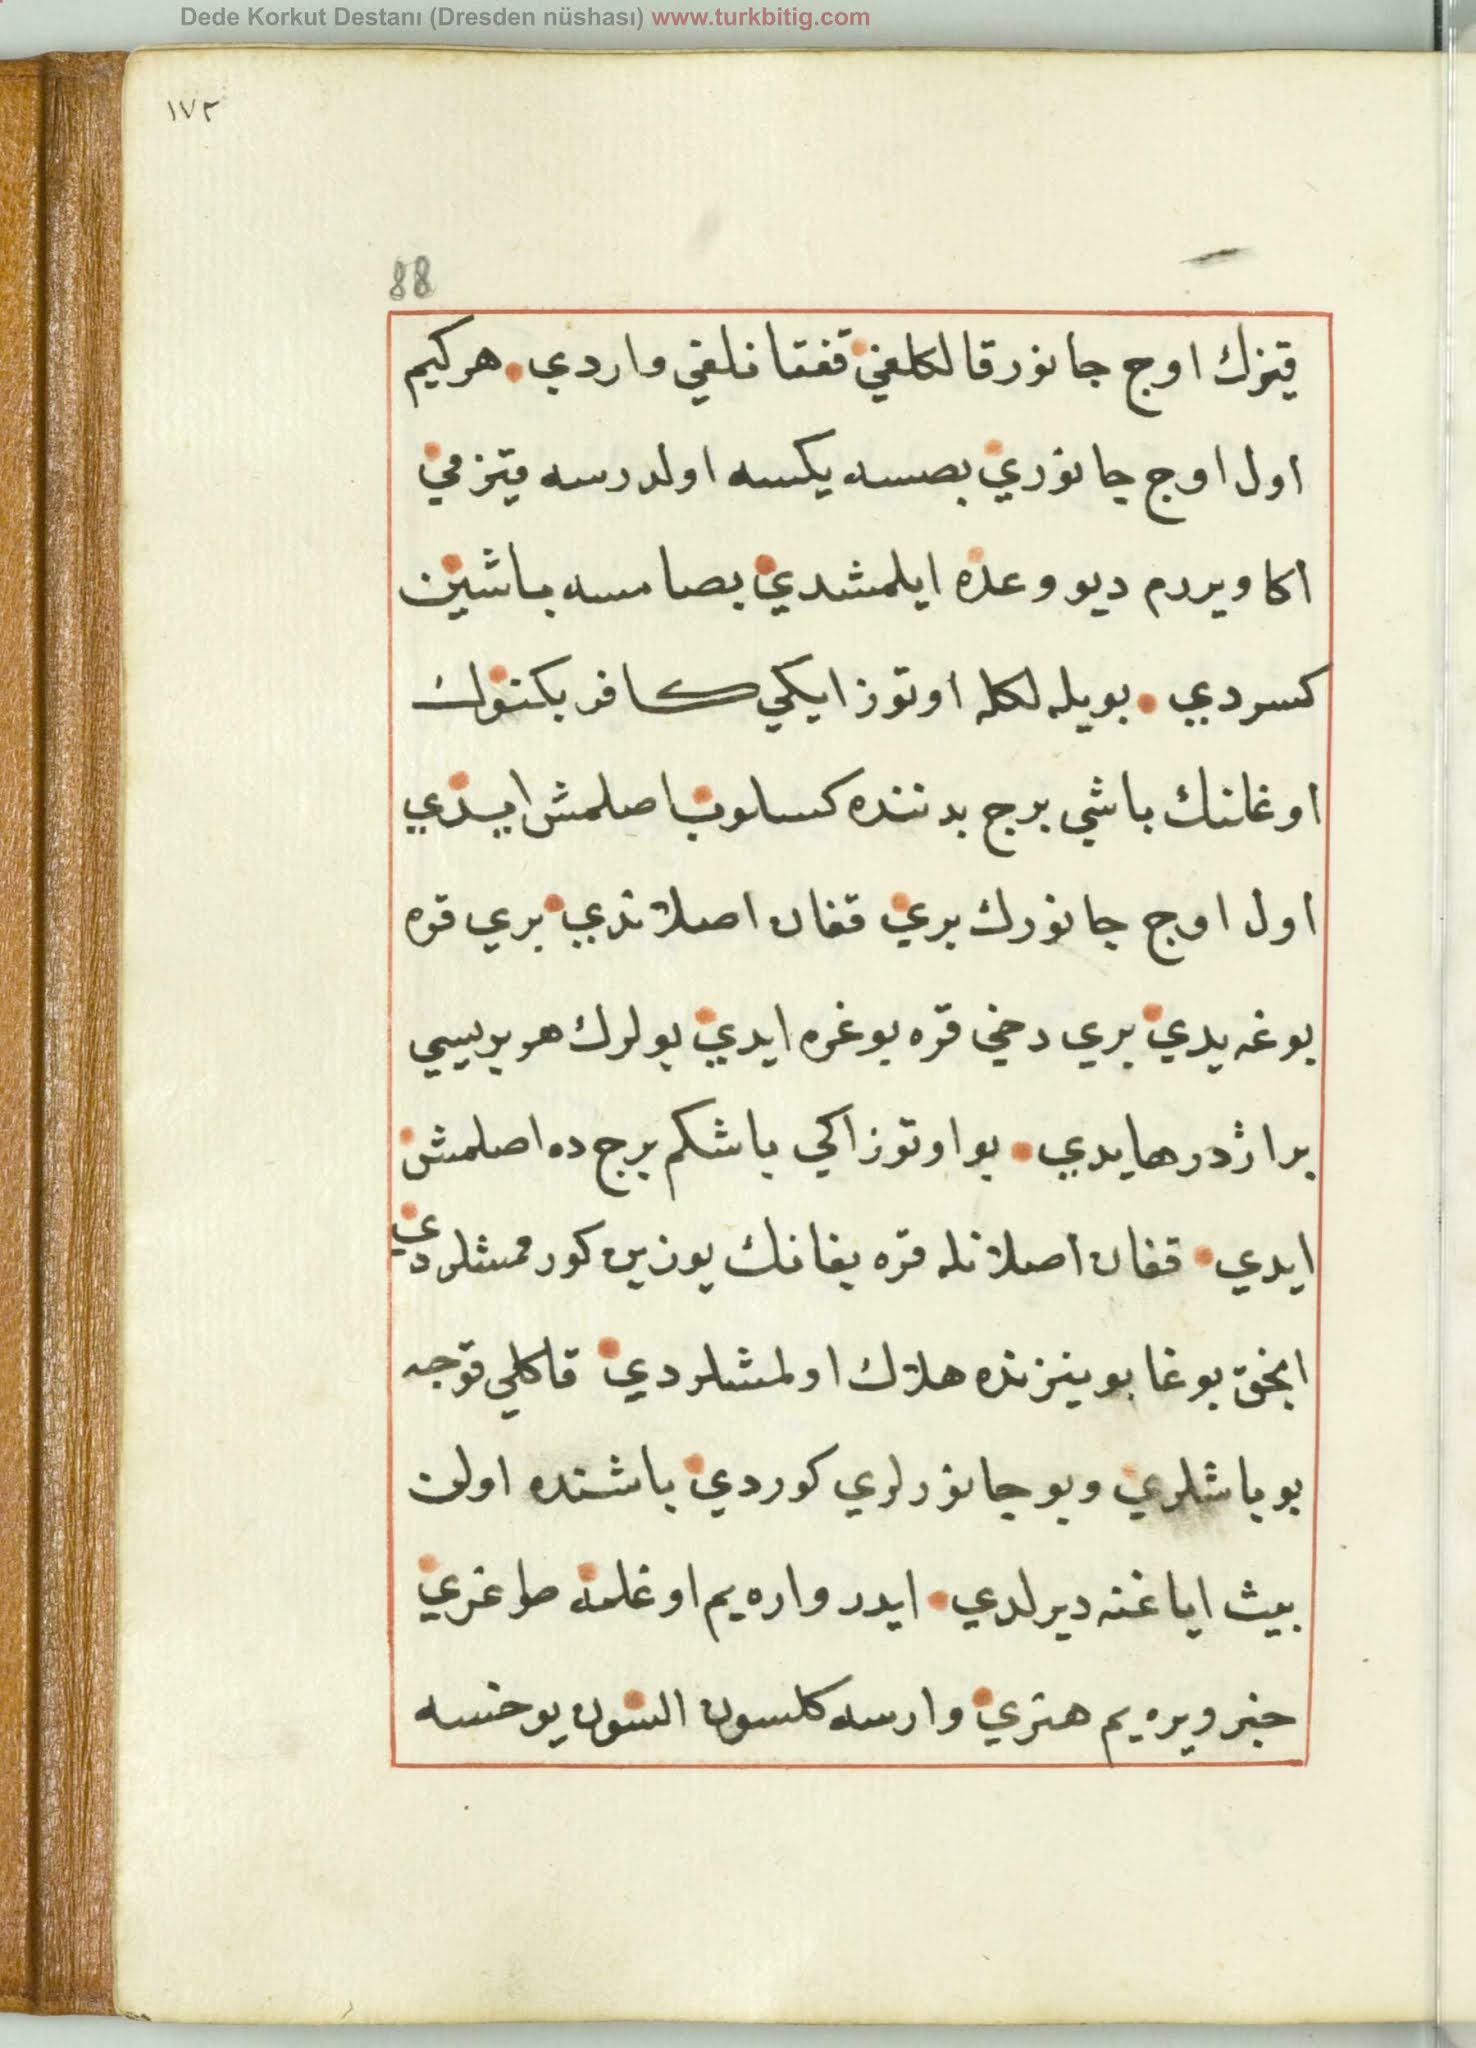 Dede Korkut Destanı (Dresden nüshası) www.turkbitig.com
١٧٢
88
قيزك اوچ جانور قالكلغي قفتانلغي واردي هركيم
اول اوچ جانوري بصسه يكسه اولدرسه قيزمي
اكا ويررم ديو وعده ايلمشدي بصامسه باشين
كسردي بويله لكله اوتوز ايكي كافر بكنوك
اوغلنك باشي برج بدننده كسلوب اصلمش ايدي
اول اوچ جانورك بري قغان اصلاندي بري قره
بوغه يدي بري دخي قره بوغره ايدي بولرك هر بريسي
بر اژدرهايدي بو اوتوز اكي باشكم برج ده اصلمش
ايدي قغان اصلانله قره بغانك يوزين كورممشلردي
انجق بوغا بوينزنده هلاك اولمشلردي قاكلي قوجه
بو باشلري و بو جانورلري كوردي باشنده اولن
بيت اياغنه ديرلدي ايدر واره يم اوغلمه طوغري
خبر ويره يم هنري وارسه كلسون السون يوخسه